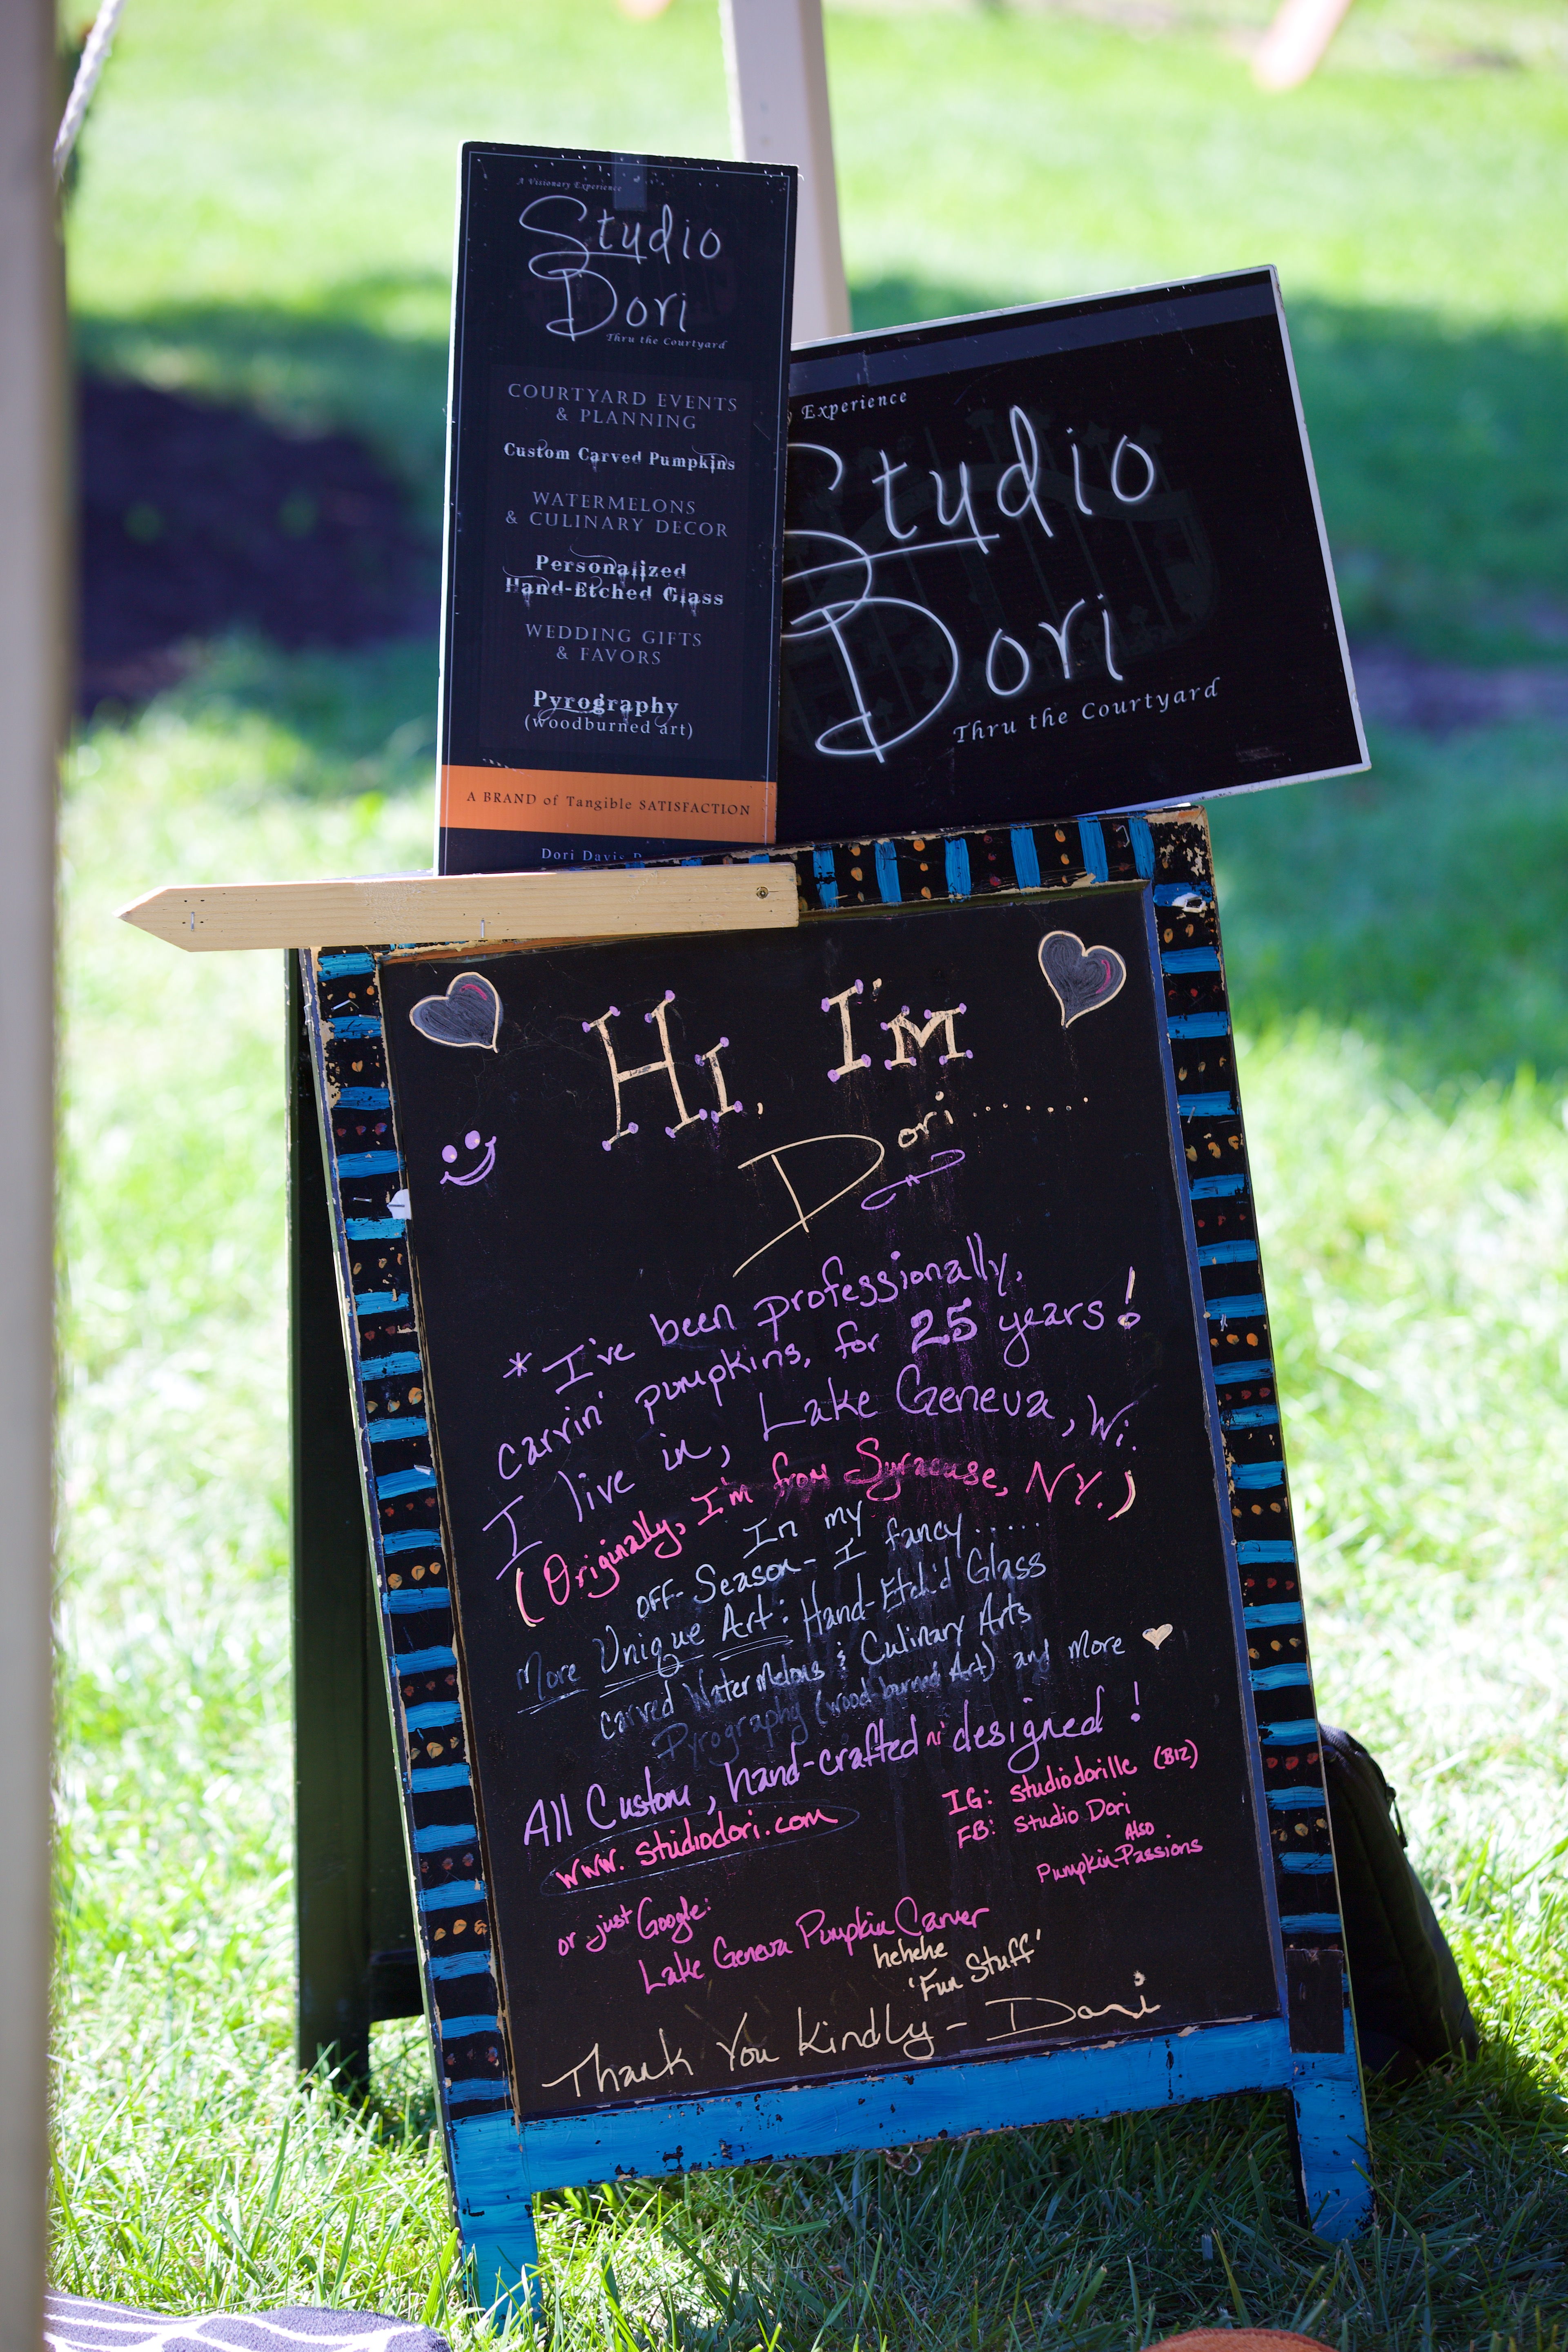 A Visionary Experience
Studio
Dori
Thru the Courtyard
COURTYARD EVENTS
& PLANNING
Custom Carved Pumpkins
WATERMELONS
& CULINARY DECOR
Personalized
Hand-Etched Glass
WEDDING GIFTS
& FAVORS
Pyrography
(woodburned art)
A BRAND of Tangible SATISFACTION
Dori Davis
Experience
Studio
Dori
Thru the Courtyard
Hi, I'm
Dori........
* I've been professionally,
carvin' pumpkins, for 25 years!
I live in, Lake Geneva, Wi.
(Originally, I'm from Syracuse, NY.)
In my
off-Season - I fancy.....
More Unique Art: Hand-Etch'd Glass
carved Watermelons & Culinary Arts
Pyrography (wood burned Art) and More
All Custom, hand-crafted n' designed!
www.studiodori.com
IG: studiodorille (BIZ)
FB: Studio Dori
Also
Pumpkin Passions
or just Google:
Lake Geneva Pumpkin Carver
hehehe
'Fun Stuff'
Thank You Kindly - Dori